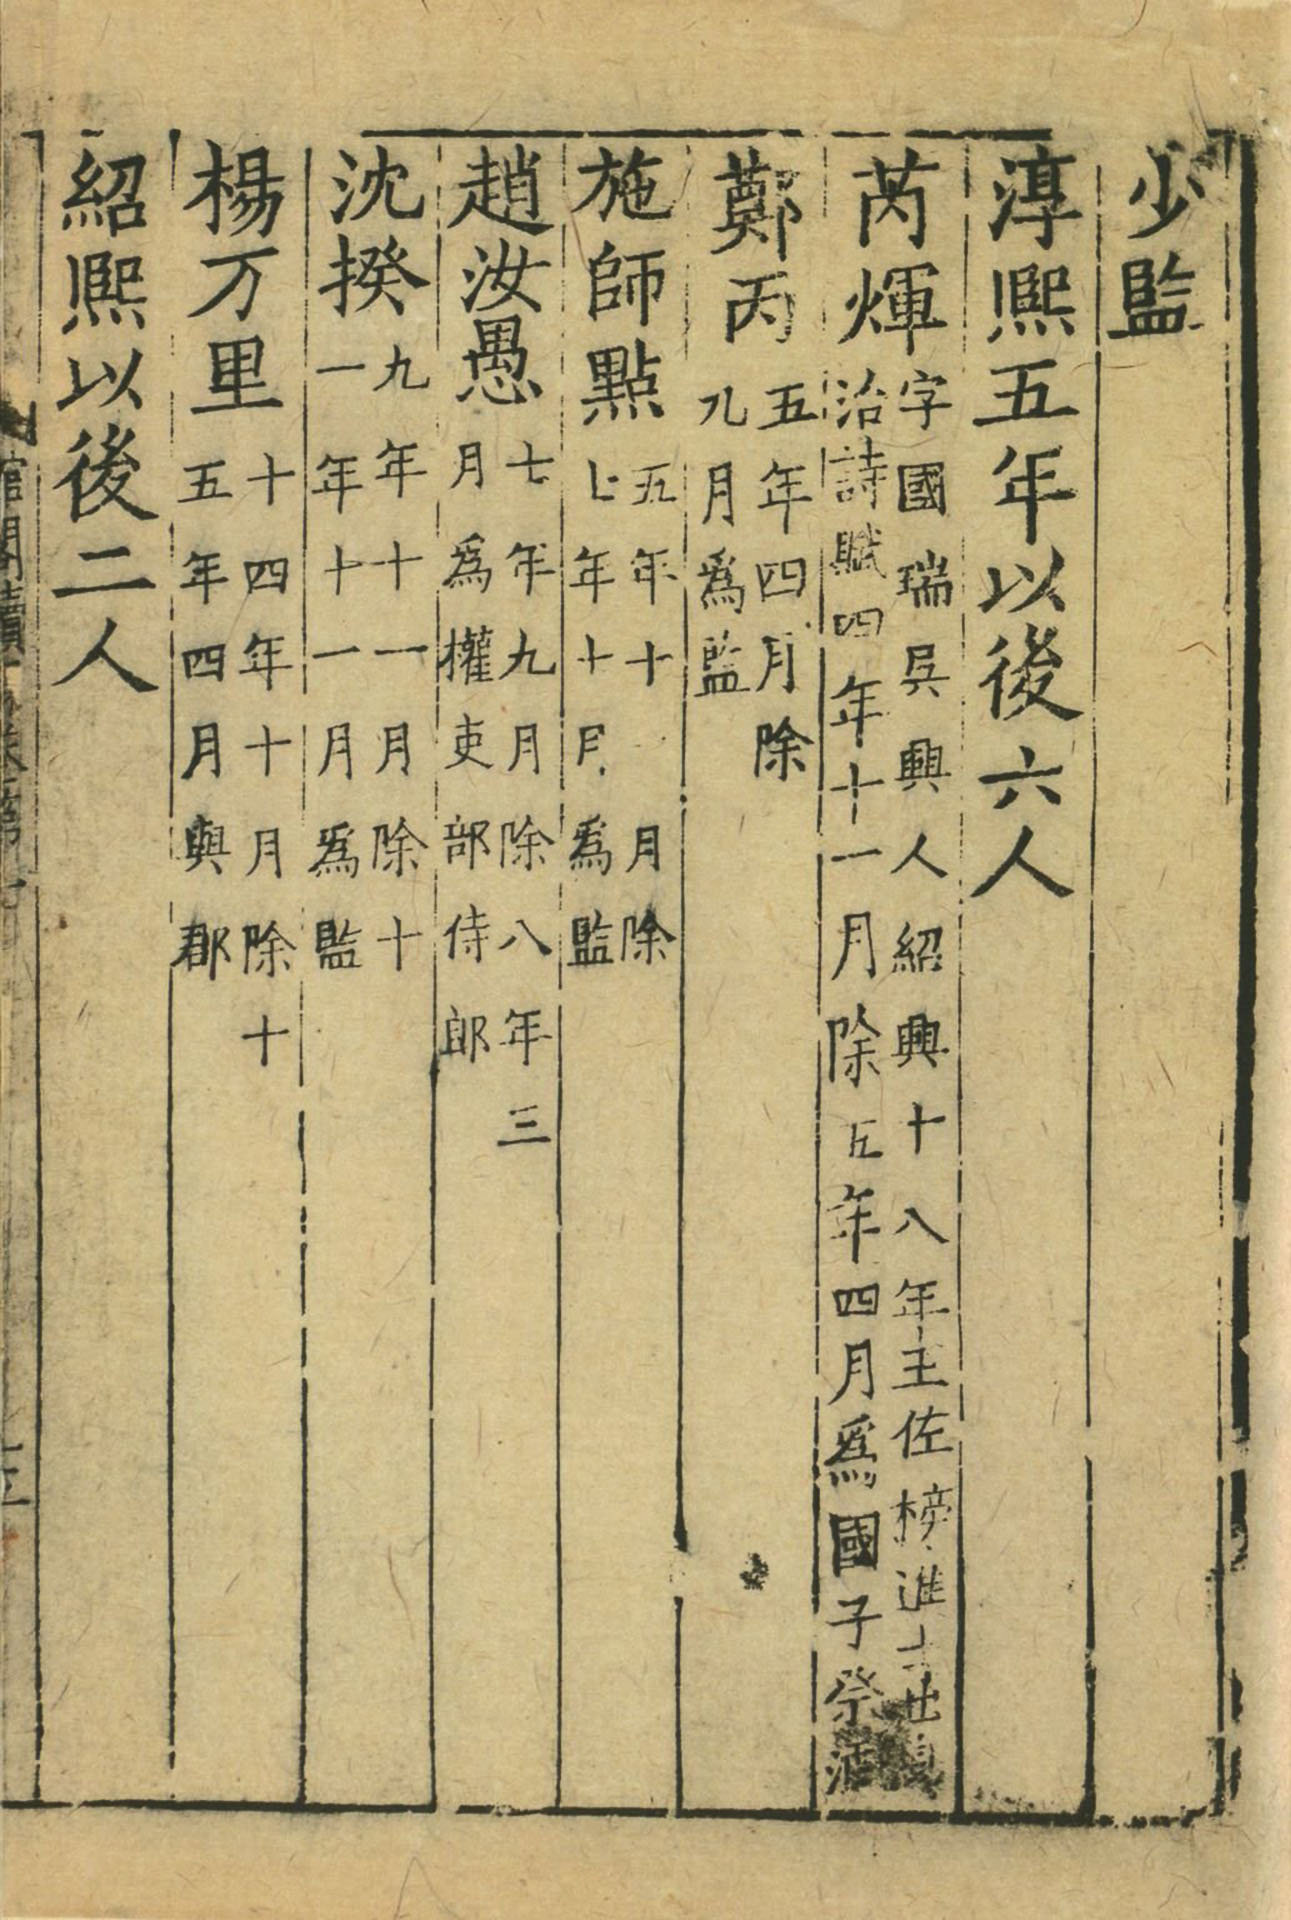 少監
淳熙五年以後六人
芮煇字國瑞吳興人紹興十八年王佐榜進士出身
治詩賦四年十一月除五年四月爲國子祭酒
鄭丙五年四月除
九月爲監
施師點五年十月除
七年十月爲監
趙汝愚七年九月除八年三
月爲權吏部侍郎
沈揆九年十一月除十
一年十一月爲監
楊万里十四年十月除十
五年四月與郡
紹熙以後二人
館閣續錄卷第